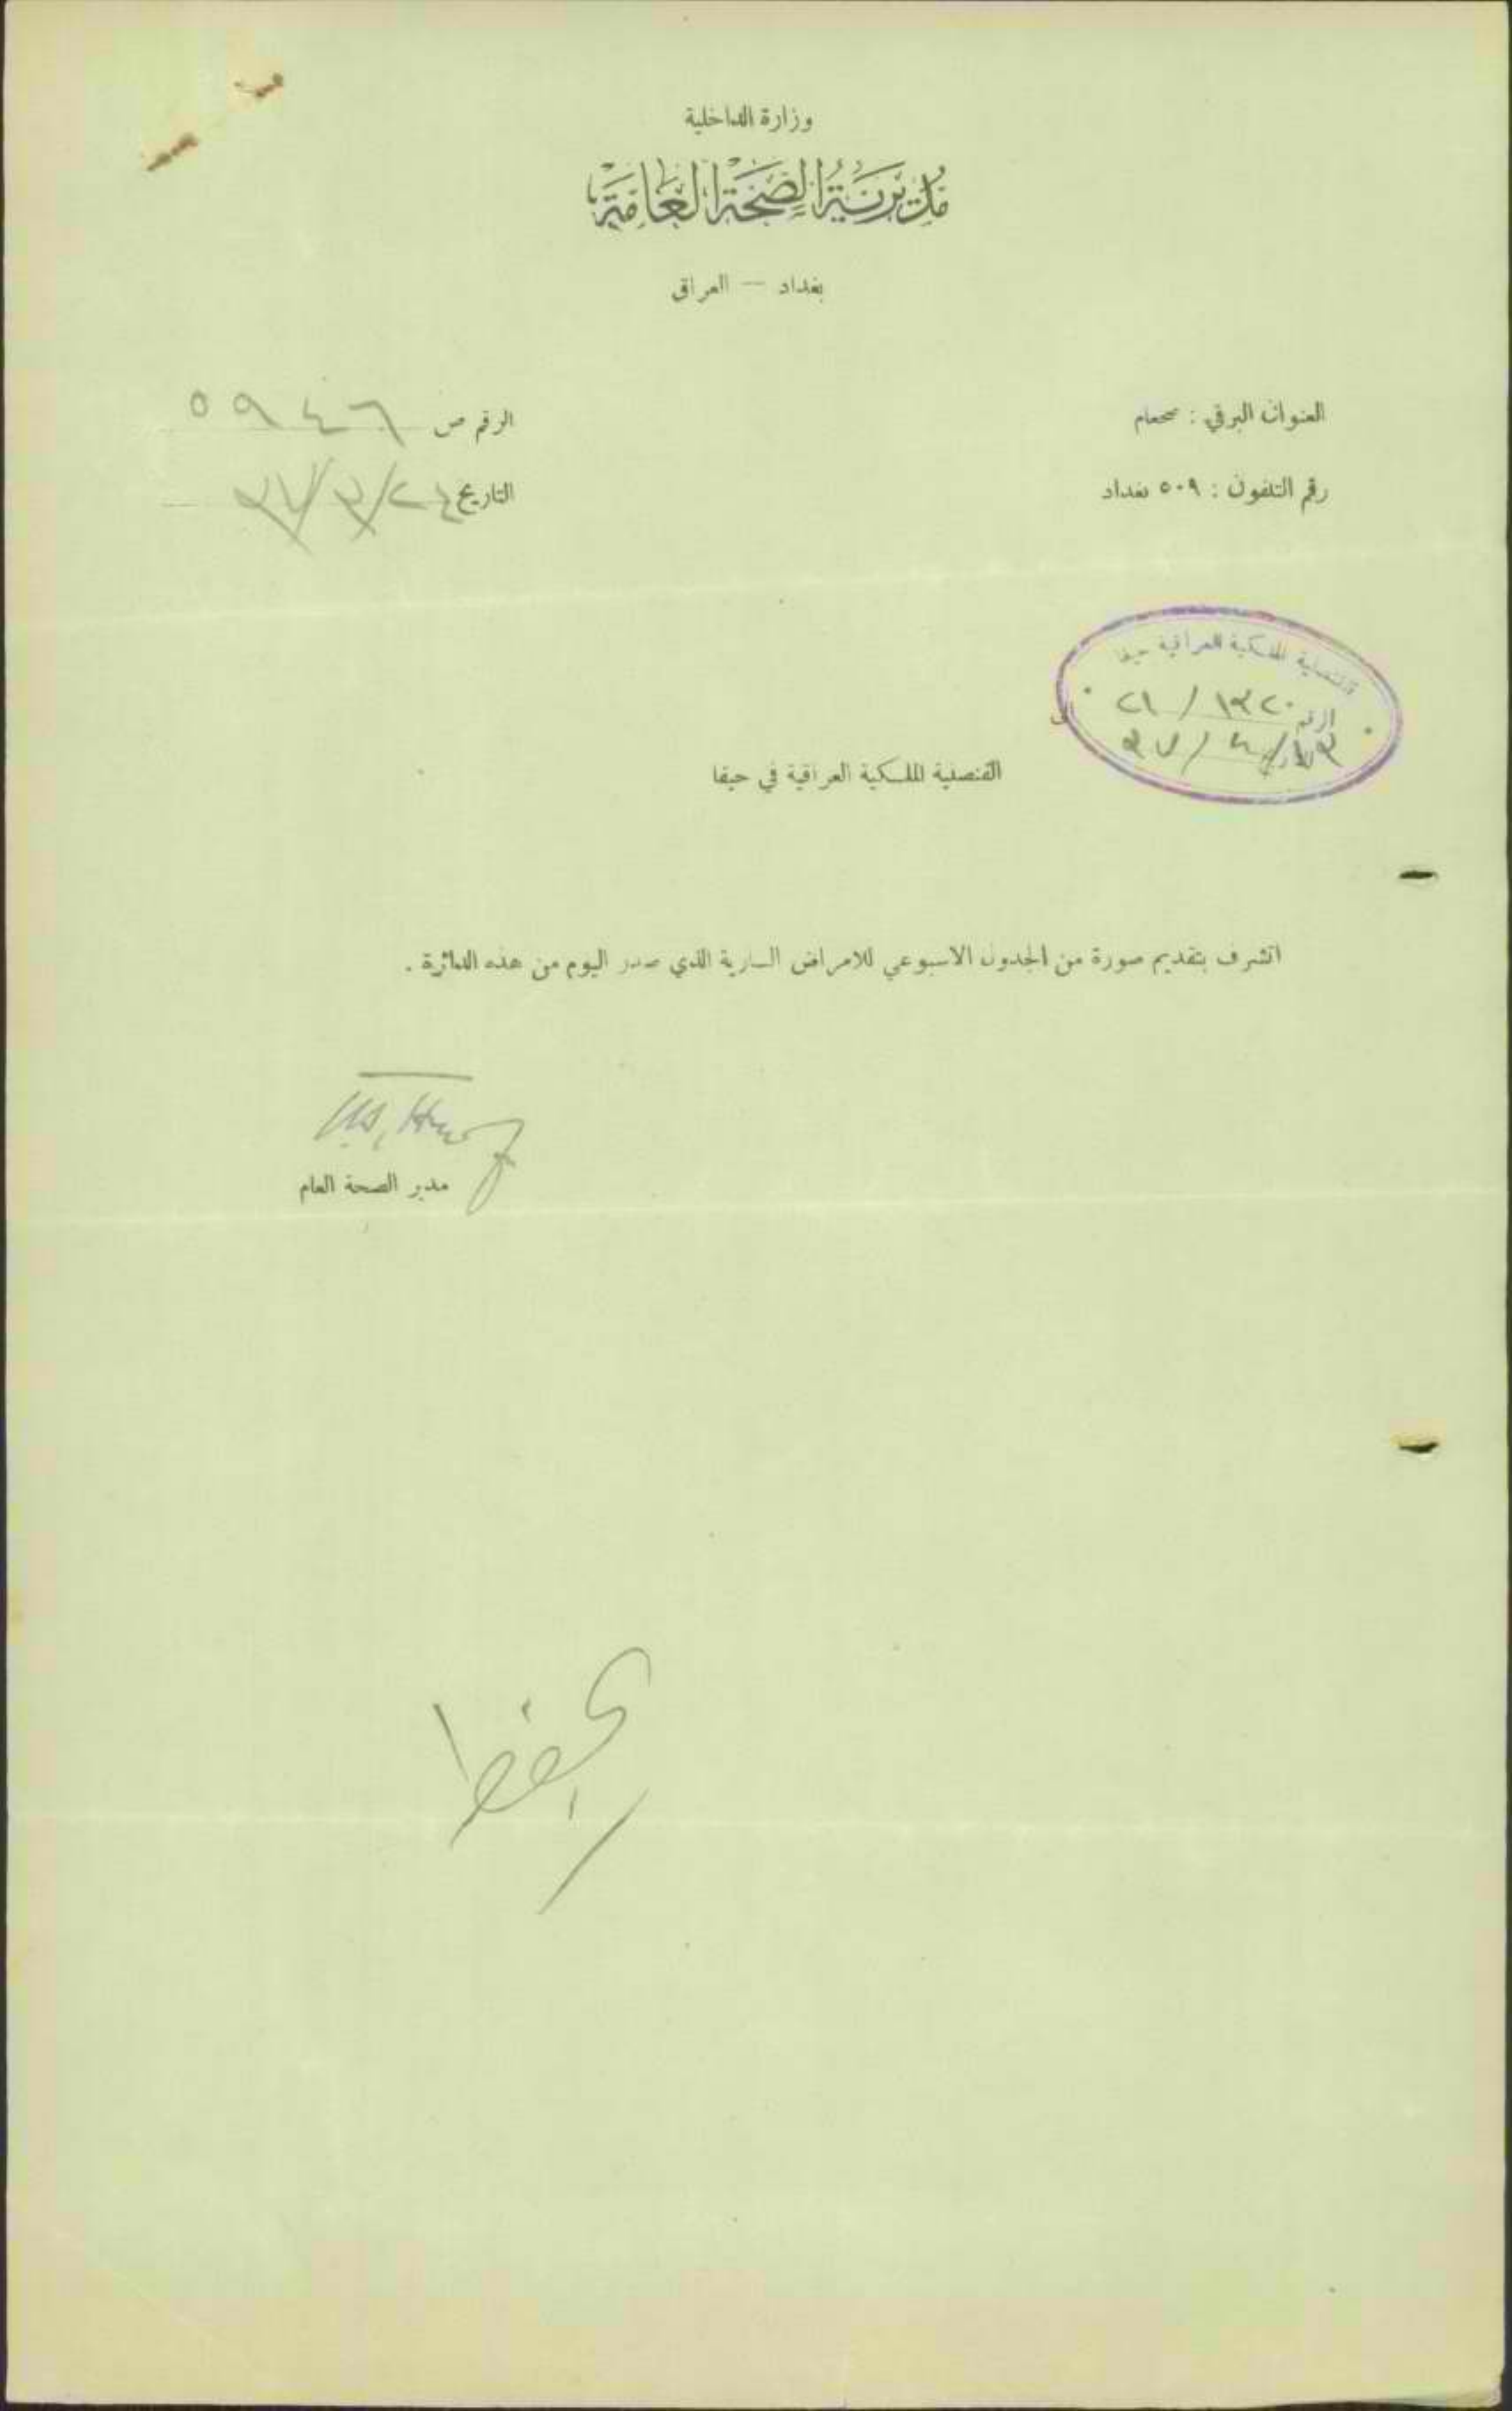 وزارة الداخلية
مُدِيْرِيَّةُ الصِّحَّةِ الْعَامَّةِ
بغداد — العراق
العنوان البرقي : صحعام
الرقم ص ٥٩٤٦
رقم التلفون : ٥٠٩ بغداد
التاريخ ٢٤/٣/٣٧
القنصلية الملكية العراقية حيفا
الرقم ١٣٢٠ / ٢١
الى
القنصلية الملكية العراقية في حيفا
اتشرف بتقديم صورة من الجدول الاسبوعي للامراض السارية الذي صدر اليوم من هذه الدائرة .
مدير الصحة العام
يحفظ